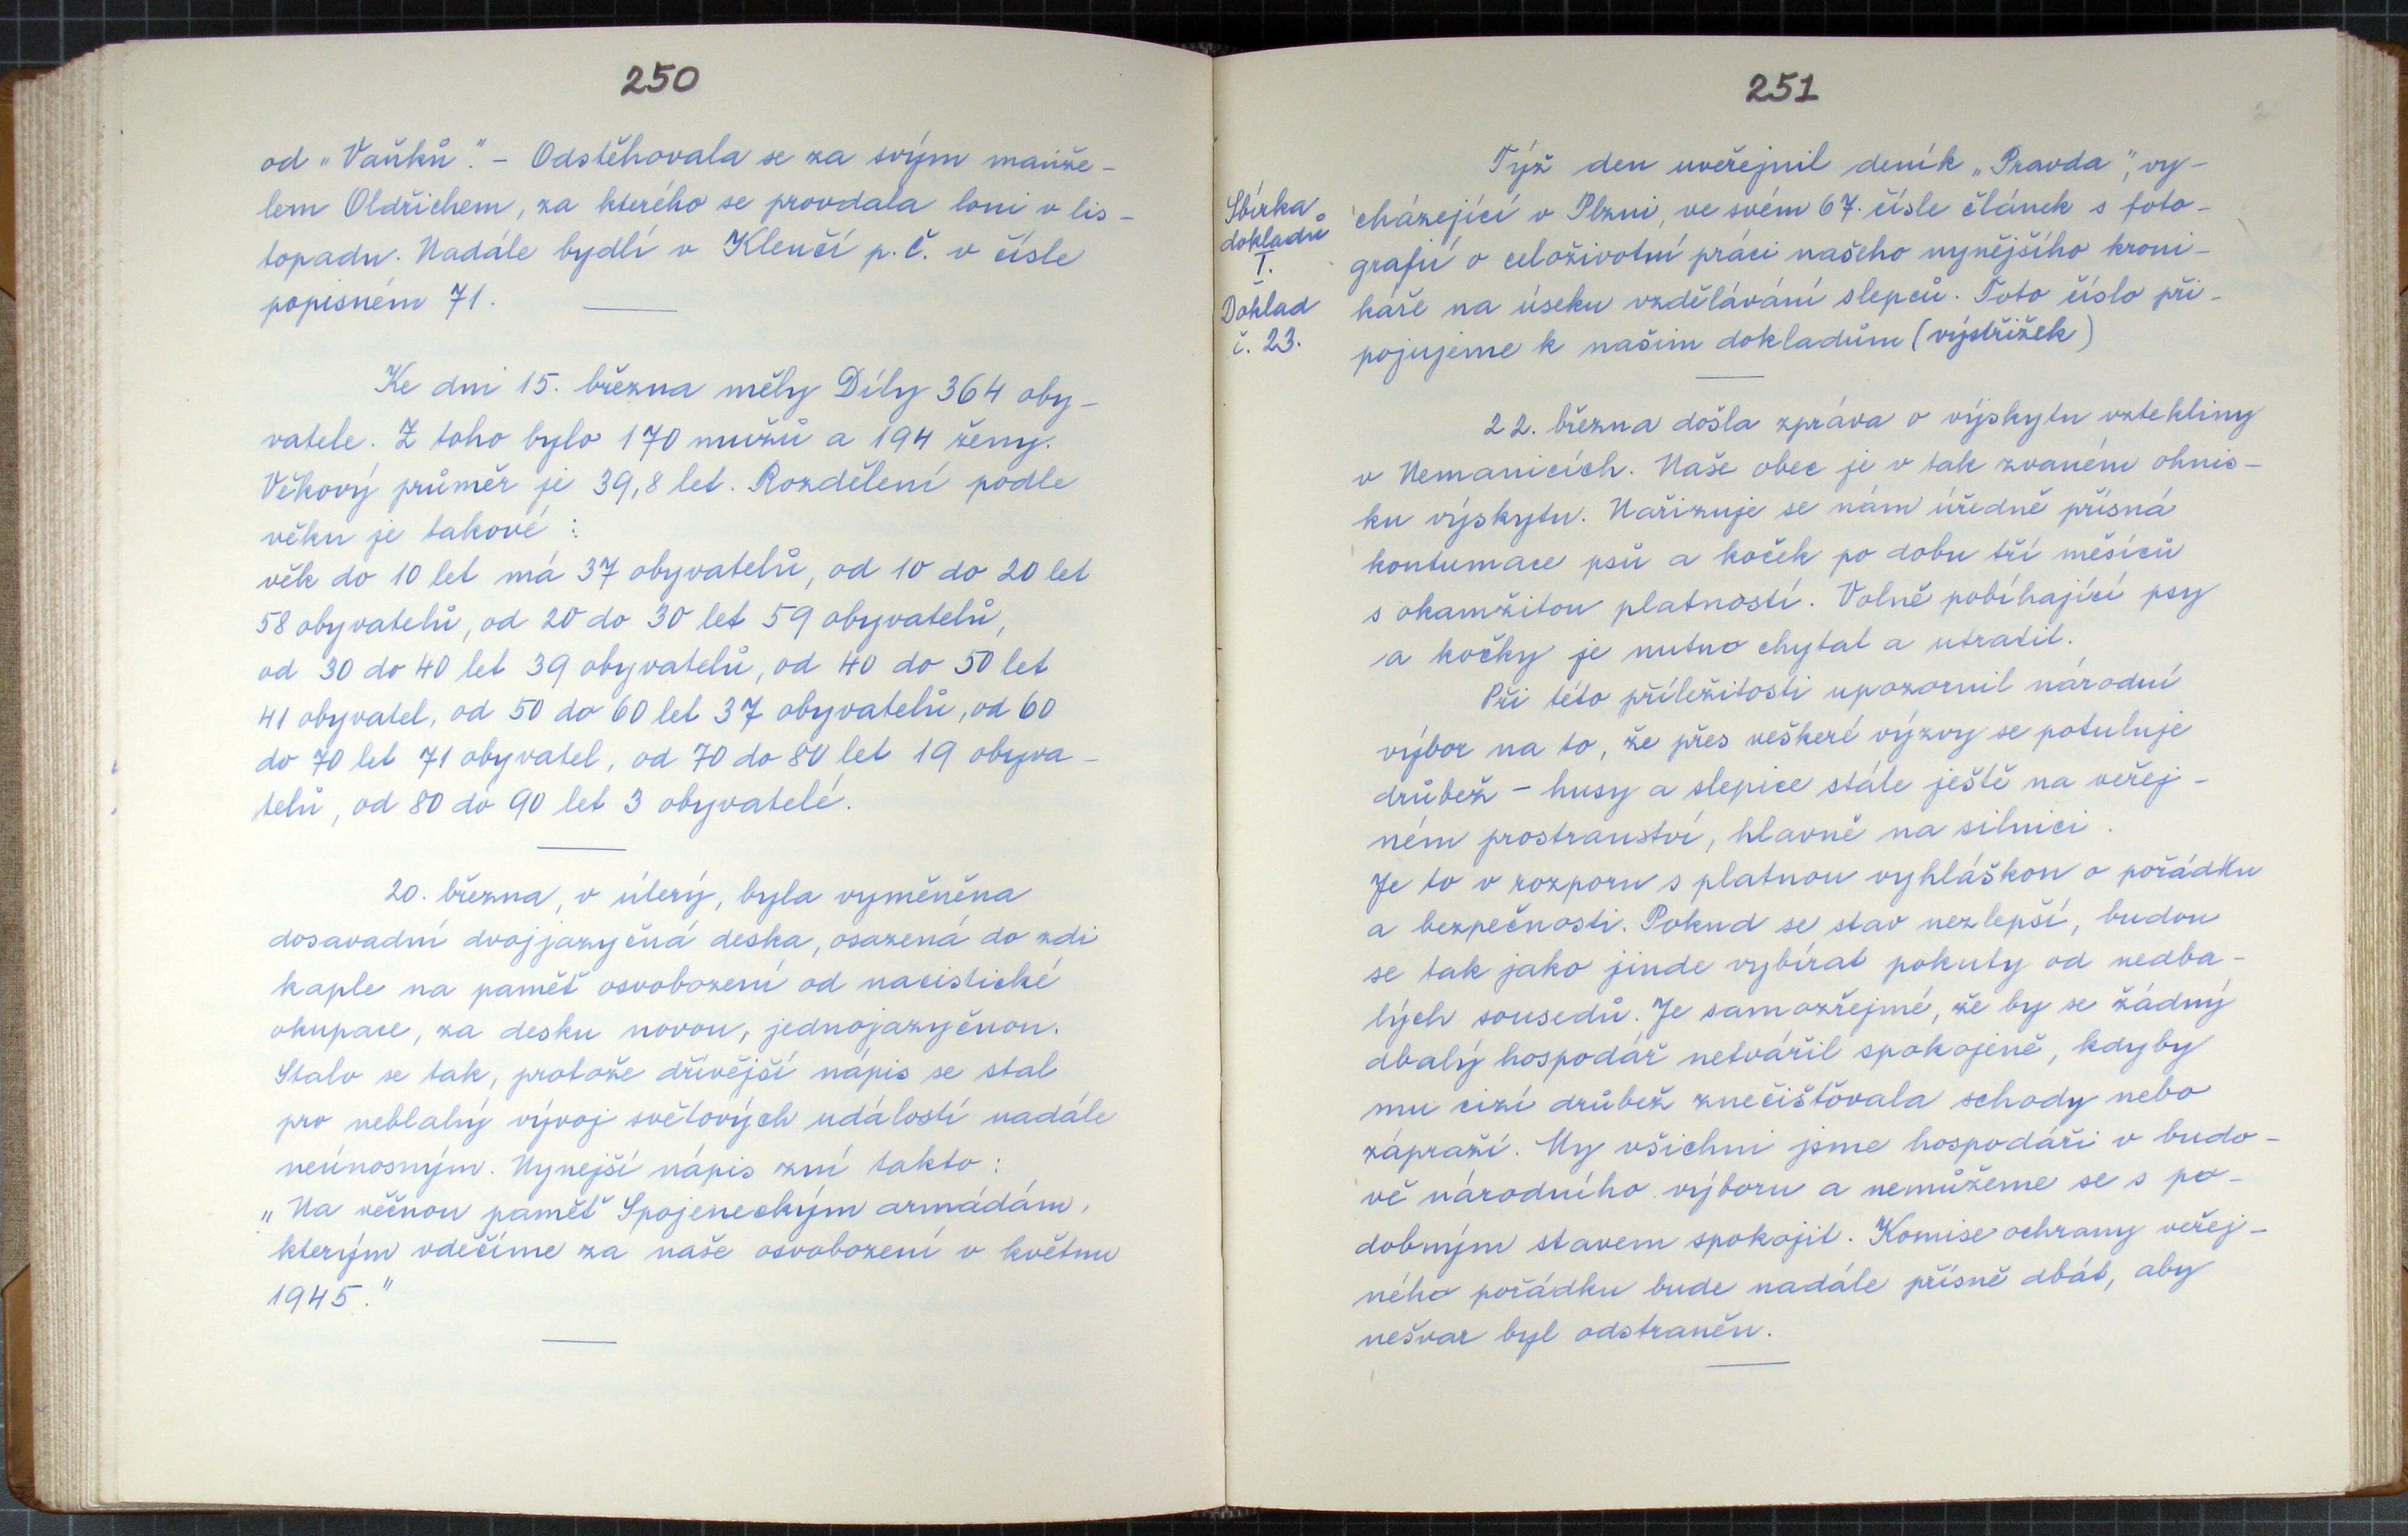 250
od „Vaňků“. – Odstěhovala se za svým manže-
lem Oldřichem, za kterého se provdala loni v lis-
topadu. Nadále bydlí v Klenčí p. Č. v čísle
popisném 71.
Ke dni 15. března měly Díly 364 oby-
vatele. Z toho bylo 170 mužů a 194 ženy.
Věkový průměr je 39,8 let. Rozdělení podle
věku je takové:
věk do 10 let má 37 obyvatelů, od 10 do 20 let
58 obyvatelů, od 20 do 30 let 59 obyvatelů,
od 30 do 40 let 39 obyvatelů, od 40 do 50 let
41 obyvatel, od 50 do 60 let 37 obyvatelů, od 60
do 70 let 71 obyvatel, od 70 do 80 let 19 obyva-
telů, od 80 do 90 let 3 obyvatelé.
20. března, v úterý, byla vyměněna
dosavadní dvojjazyčná deska, osazená do zdi
kaple na paměť osvobození od nacistické
okupace, za desku novou, jednojazyčnou.
Stalo se tak, protože dřívější nápis se stal
pro neblahý vývoj světových událostí nadále
neúnosným. Nynejší nápis zní takto:
„Na věčnou paměť Spojeneckým armádám,
kterým vděčíme za naše osvobození v květnu
1945.“
251
Sbírka
dokladů
I.
Doklad
č. 23.
Týž den uveřejnil deník „Pravda“, vy-
cházející v Plzni, ve svém 67. čísle článek s foto-
grafií o celoživotní práci našeho nynějšího kroni-
káře na úseku vzdělávání slepců. Toto číslo při-
pojujeme k našim dokladům (výstřižek)
22. března došla zpráva o výskytu vztekliny
v Nemanicích. Naše obec je v tak zvaném ohnis-
ku výskytu. Nařizuje se nám úředně přísná
kontumace psů a koček po dobu tří měsíců
s okamžitou platností. Volně pobíhající psy
a kočky je nutno chytat a utratit.
Při této příležitosti upozornil národní
výbor na to, že přes veškeré výzvy se potuluje
drůbež – husy a slepice stále ještě na veřej-
ném prostranství, hlavně na silnici.
Je to v rozporu s platnou vyhláškou o pořádku
a bezpečnosti. Pokud se stav nezlepší, budou
se tak jako jinde vybírat pokuty od nedba-
lých sousedů. Je samozřejmé, že by se žádný
dbalý hospodář netvářil spokojeně, kdyby
mu cizí drůbež znečišťovala schody nebo
zápraží. My všichni jsme hospodáři v budo-
vě národního výboru a nemůžeme se s po-
dobným stavem spokojit. Komise ochrany veřej-
ného pořádku bude nadále přísně dbát, aby
nešvar byl odstraněn.